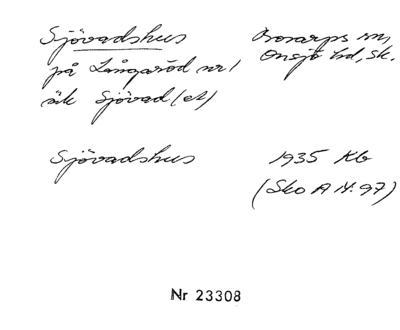 Sjövadshus Bosarps sn,
på Långaröd nr 1 Onsjö hd, Sk.
äk Sjövad (et)
Sjövadshus 1935 Kb
(Sko A 14:97)
Nr 23308